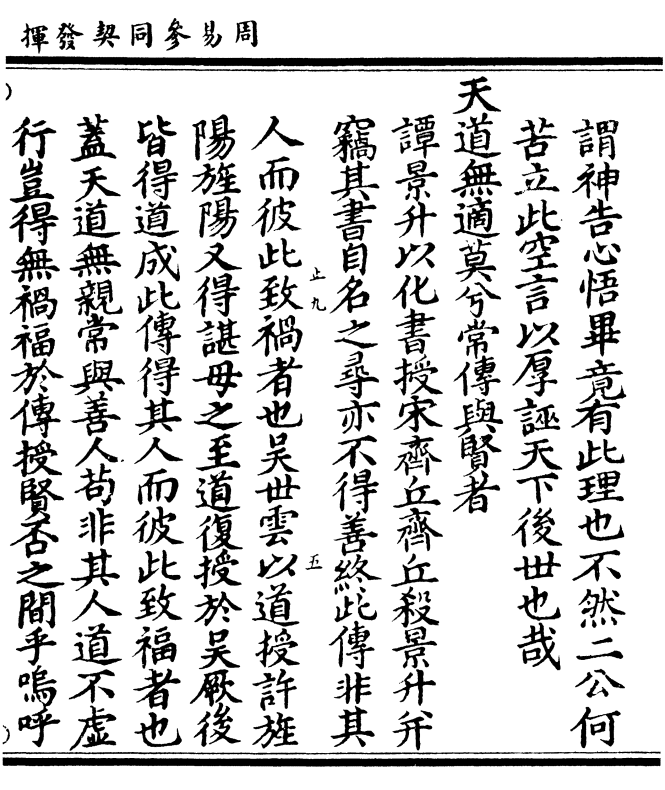 周易參同契發揮
謂神告心悟畢竟有此理也不然二公何
苦立此空言以厚誣天下後世也哉
天道無適莫兮常傳與賢者
譚景升以化書授宋齊丘齊丘殺景升并
竊其書自名之尋亦不得善終此傳非其
人而彼此致禍者也吳世雲以道授許旌
陽旌陽又得諶母之至道復授於吳厥後
皆得道成此傳得其人而彼此致福者也
蓋天道無親常與善人茍非其人道不虛
行豈得無禍福於傳授賢否之間乎嗚呼
上九
五